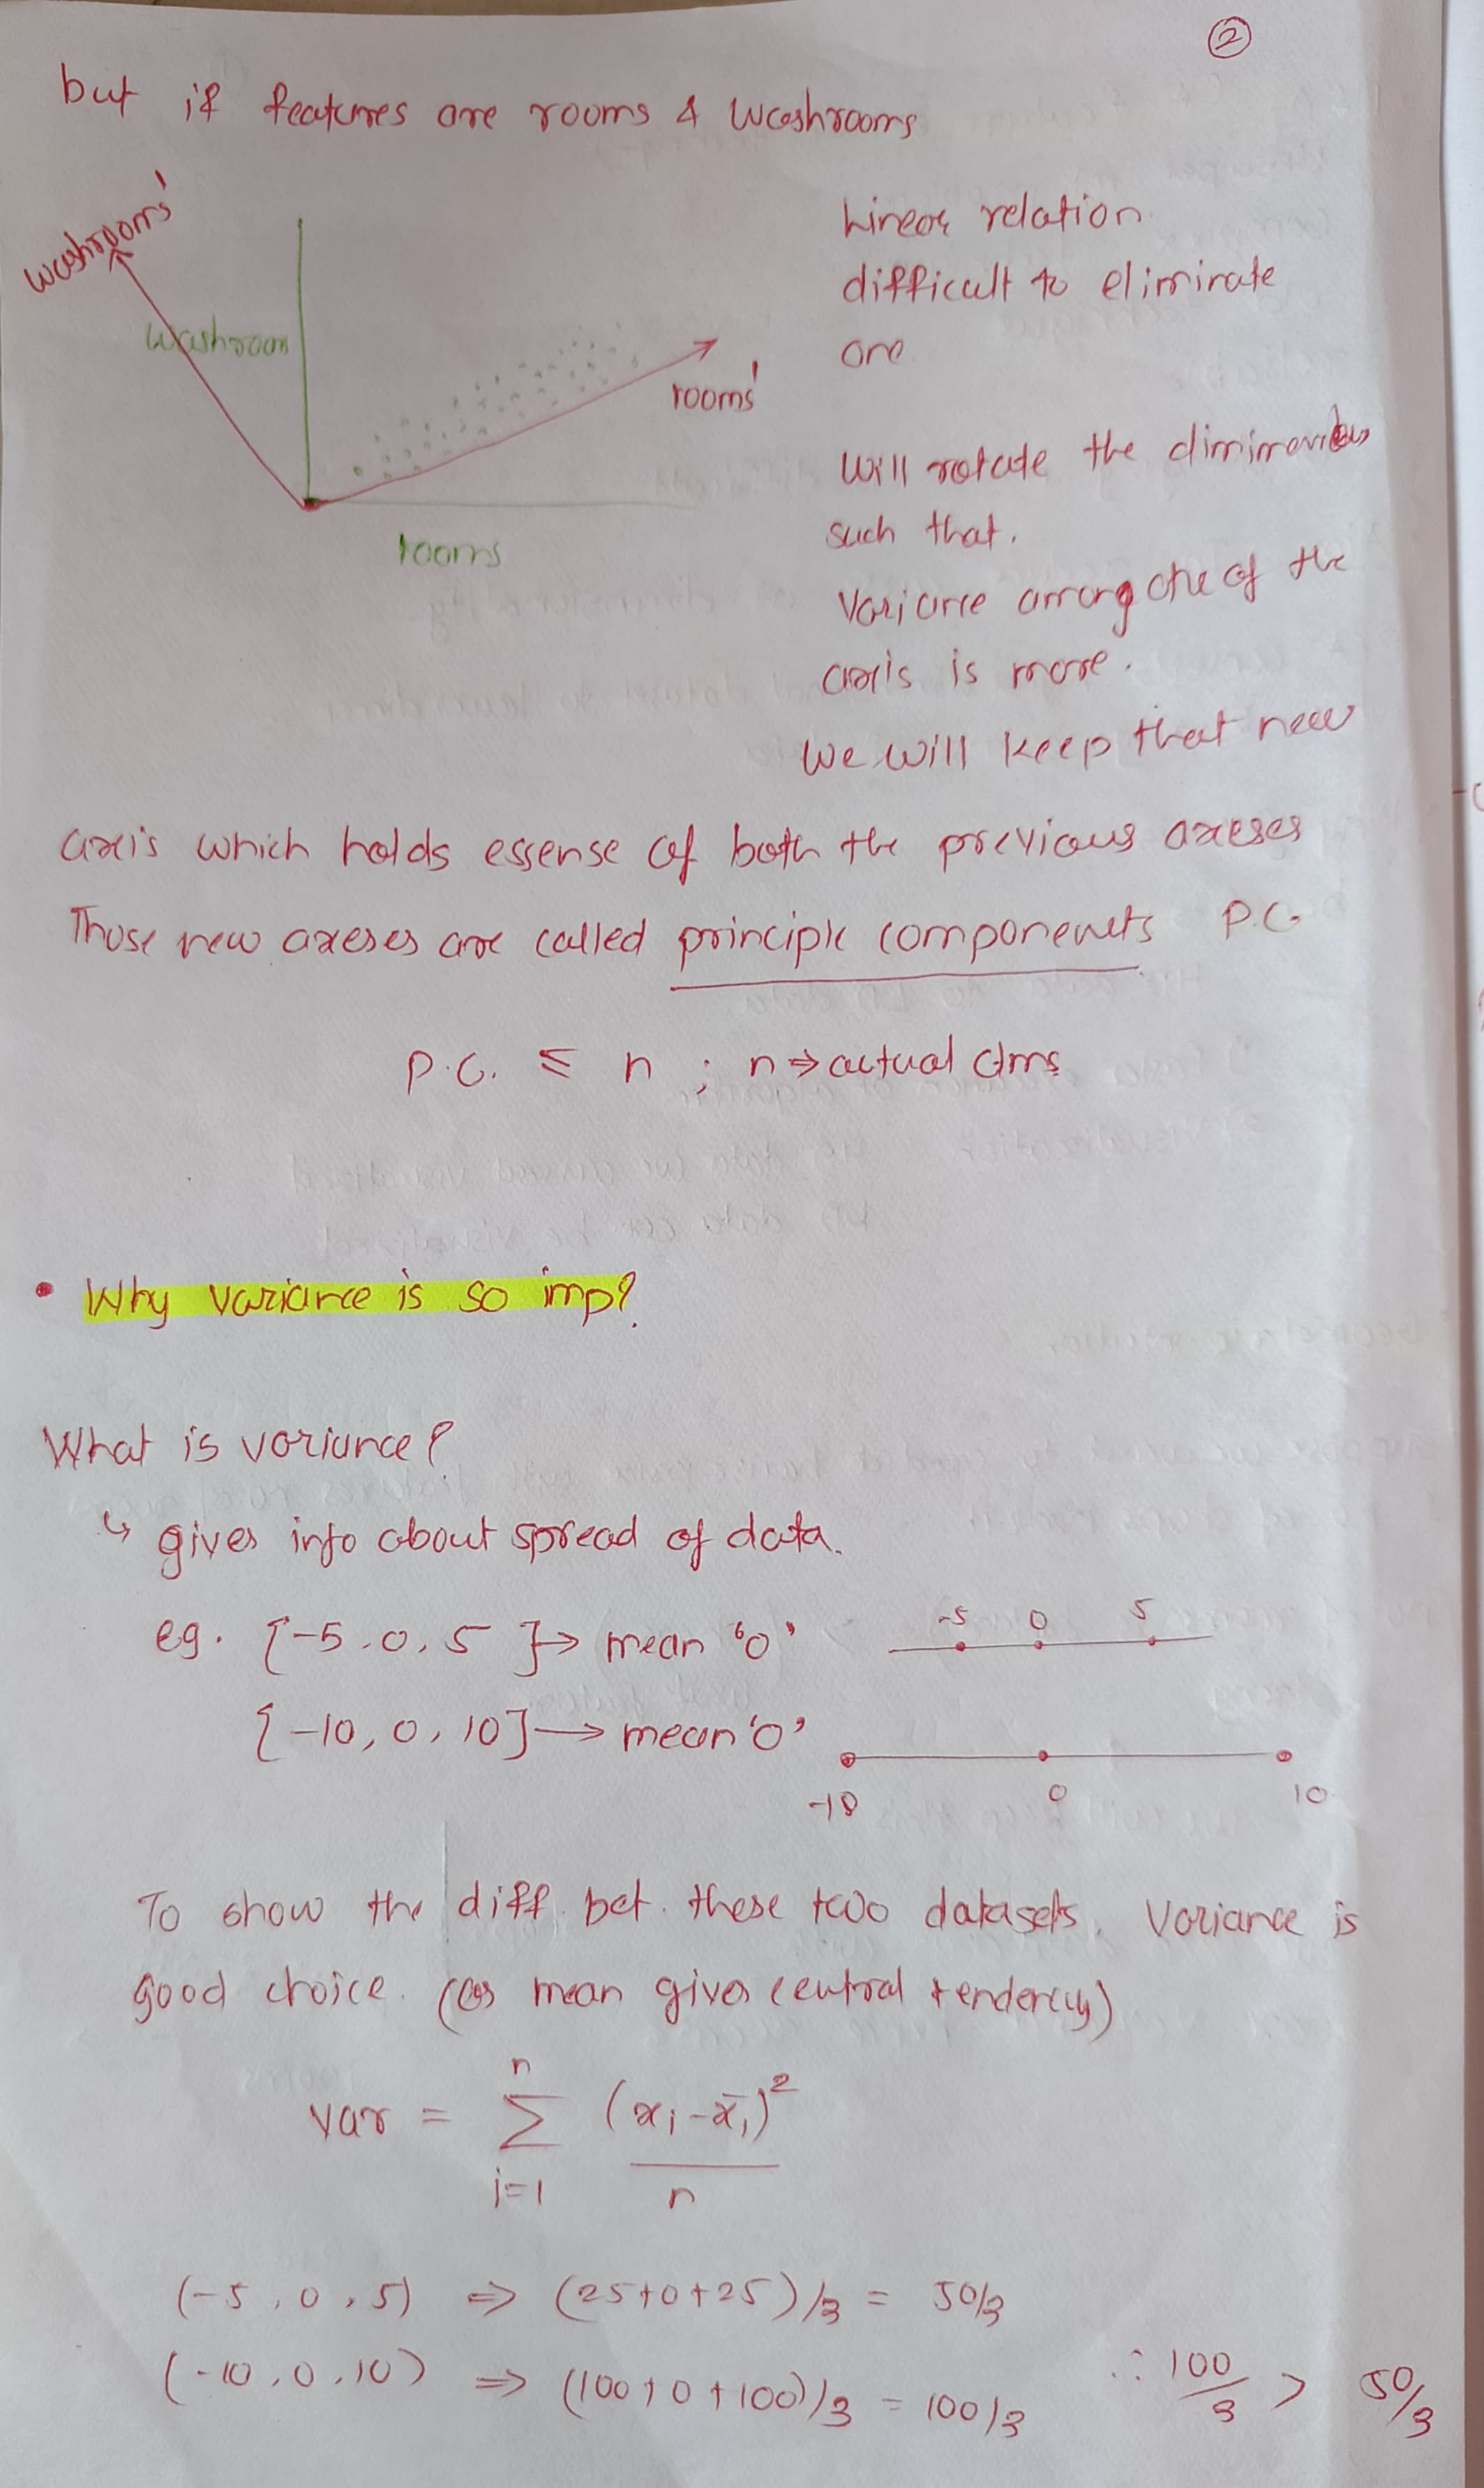 ②
but if features are rooms & washrooms
washrooms'
washroom
rooms'
rooms
Linear relation
difficult to eliminate
one
Will rotate the
such that.
Variance among one of the
axis is more.
We will keep that new
axis which holds essense of both the previous axeses
Those new axeses are called principle componenets P.C.
P.C. ≤ n ; n ⇒ actual dms
• Why variance is so imp?
What is variance?
↳ gives info about spread of data.
eg. {-5, 0, 5 } → mean '0'
-5 0 5
{-10, 0, 10} → mean '0'
-10 0 10
To show the diff. bet. these two datasets, Variance is
good choice. (as mean gives central tendency)
var = n Σ i=1 (xi - x̄i)² / n
(-5, 0, 5) ⇒ (25+0+25)/3 = 50/3
(-10, 0, 10) ⇒ (100+0+100)/3 = 100/3 ∴ 100/3 > 50/3